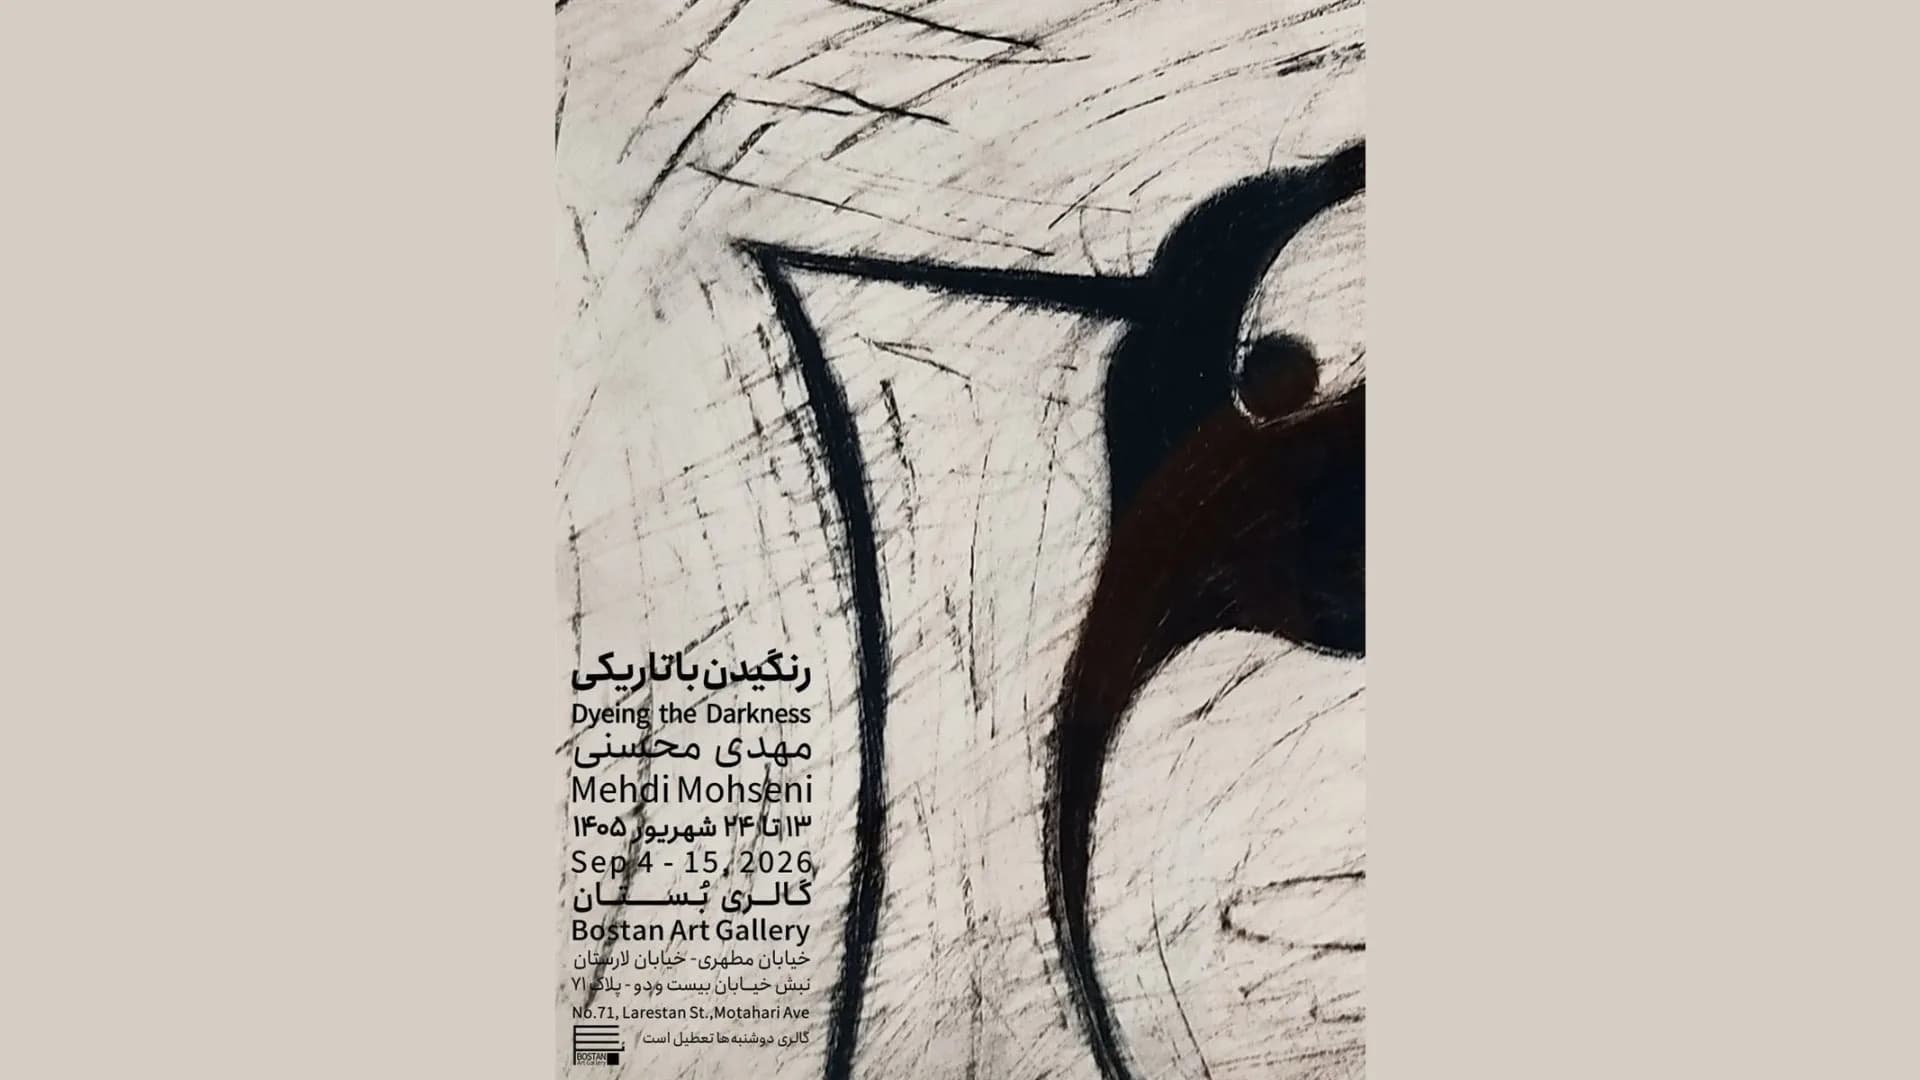 رنگیدن با تاریکی
Dyeing the Darkness
مهدی محسنی
Mehdi Mohseni
۱۳ تا ۲۴ شهریور ۱۴۰۵
Sep 4 - 15, 2026
گالری بُستان
Bostan Art Gallery
خیابان مطهری- خیابان لارستان
نبش خیابان بیست و دو - پلاک ۷۱
No.71, Larestan St.,Motahari Ave
گالری دوشنبه‌ها تعطیل است
BOSTAN
Art Gallery